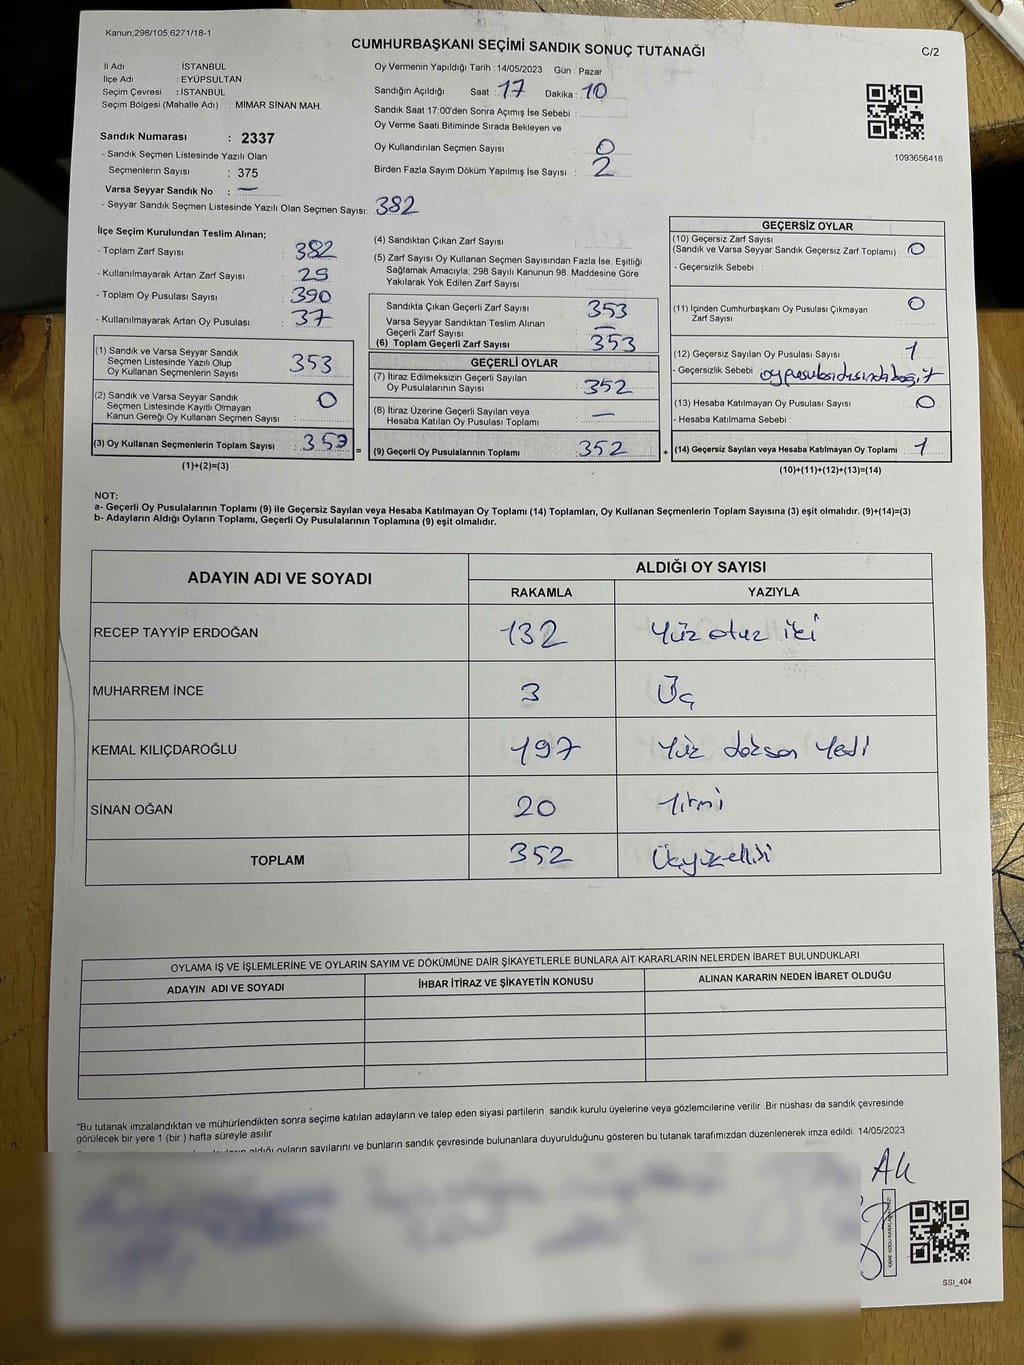 Kanun;298/105,6271/18-1
CUMHURBAŞKANI SEÇİMİ SANDIK SONUÇ TUTANAĞI
C/2
İl Adı : İSTANBUL
İlçe Adı : EYÜPSULTAN
Seçim Çevresi : İSTANBUL
Seçim Bölgesi (Mahalle Adı) : MİMAR SİNAN MAH.
Oy Vermenin Yapıldığı Tarih : 14/05/2023 Gün : Pazar
Sandığın Açıldığı Saat : 17 Dakika : 10
Sandık Saat 17:00'den Sonra Açımış İse Sebebi :
Oy Verme Saati Bitiminde Sırada Bekleyen ve
Oy Kullandırılan Seçmen Sayısı : 0
Birden Fazla Sayım Döküm Yapılmış İse Sayısı : 2
1093656418
Sandık Numarası : 2337
- Sandık Seçmen Listesinde Yazılı Olan
Seçmenlerin Sayısı : 375
Varsa Seyyar Sandık No : —
- Seyyar Sandık Seçmen Listesinde Yazılı Olan Seçmen Sayısı: 382
İlçe Seçim Kurulundan Teslim Alınan;
- Toplam Zarf Sayısı : 382
- Kullanılmayarak Artan Zarf Sayısı : 29
- Toplam Oy Pusulası Sayısı : 390
- Kullanılmayarak Artan Oy Pusulası : 37
(1) Sandık ve Varsa Seyyar Sandık
Seçmen Listesinde Yazılı Olup
Oy Kullanan Seçmenlerin Sayısı : 353
(2) Sandık ve Varsa Seyyar Sandık
Seçmen Listesinde Kayıtlı Olmayan
Kanun Gereği Oy Kullanan Seçmen Sayısı : 0
(3) Oy Kullanan Seçmenlerin Toplam Sayısı : 353
(1)+(2)=(3)
(4) Sandıktan Çıkan Zarf Sayısı :
(5) Zarf Sayısı Oy Kullanan Seçmen Sayısından Fazla İse, Eşitliği
Sağlamak Amacıyla; 298 Sayılı Kanunun 98. Maddesine Göre
Yakılarak Yok Edilen Zarf Sayısı :
Sandıkta Çıkan Geçerli Zarf Sayısı : 353
Varsa Seyyar Sandıktan Teslim Alınan
Geçerli Zarf Sayısı : —
(6) Toplam Geçerli Zarf Sayısı : 353
GEÇERLİ OYLAR
(7) İtiraz Edilmeksizin Geçerli Sayılan
Oy Pusulalarının Sayısı : 352
(8) İtiraz Üzerine Geçerli Sayılan veya
Hesaba Katılan Oy Pusulası Toplamı : —
= (9) Geçerli Oy Pusulalarının Toplamı : 352
GEÇERSİZ OYLAR
(10) Geçersiz Zarf Sayısı
(Sandık ve Varsa Seyyar Sandık Geçersiz Zarf Toplamı) : 0
- Geçersizlik Sebebi :
(11) İçinden Cumhurbaşkanı Oy Pusulası Çıkmayan
Zarf Sayısı : 0
(12) Geçersiz Sayılan Oy Pusulası Sayısı : 1
- Geçersizlik Sebebi : oy pusulası dışında
(13) Hesaba Katılmayan Oy Pusulası Sayısı : 0
- Hesaba Katılmama Sebebi :
+ (14) Geçersiz Sayılan veya Hesaba Katılmayan Oy Toplamı : 1
(10)+(11)+(12)+(13)=(14)
NOT:
a- Geçerli Oy Pusulalarının Toplamı (9) ile Geçersiz Sayılan veya Hesaba Katılmayan Oy Toplamı (14) Toplamları, Oy Kullanan Seçmenlerin Toplam Sayısına (3) eşit olmalıdır. (9)+(14)=(3)
b- Adayların Aldığı Oyların Toplamı, Geçerli Oy Pusulalarının Toplamına (9) eşit olmalıdır.
ADAYIN ADI VE SOYADI ALDIĞI OY SAYISI
RAKAMLA YAZIYLA
RECEP TAYYİP ERDOĞAN 132 Yüz otuz iki
MUHARREM İNCE 3 Üç
KEMAL KILIÇDAROĞLU 197 Yüz doksan Yedi
SİNAN OĞAN 20 Yirmi
TOPLAM 352 Üçyüzelliiki
OYLAMA İŞ VE İŞLEMLERİNE VE OYLARIN SAYIM VE DÖKÜMÜNE DAİR ŞİKAYETLERLE BUNLARA AİT KARARLARIN NELERDEN İBARET BULUNDUKLARI
ADAYIN ADI VE SOYADI İHBAR İTİRAZ VE ŞİKAYETİN KONUSU ALINAN KARARIN NEDEN İBARET OLDUĞU
*Bu tutanak imzalandıktan ve mühürlendikten sonra seçime katılan adayların ve talep eden siyasi partilerin sandık kurulu üyelerine veya gözlemcilerine verilir. Bir nüshası da sandık çevresinde
görülecek bir yere 1 (bir ) hafta süreyle asılır.
aldığı oyların sayılarını ve bunların sandık çevresinde bulunanlara duyurulduğunu gösteren bu tutanak tarafımızdan düzenlenerek imza edildi. 14/05/2023
SSI_404